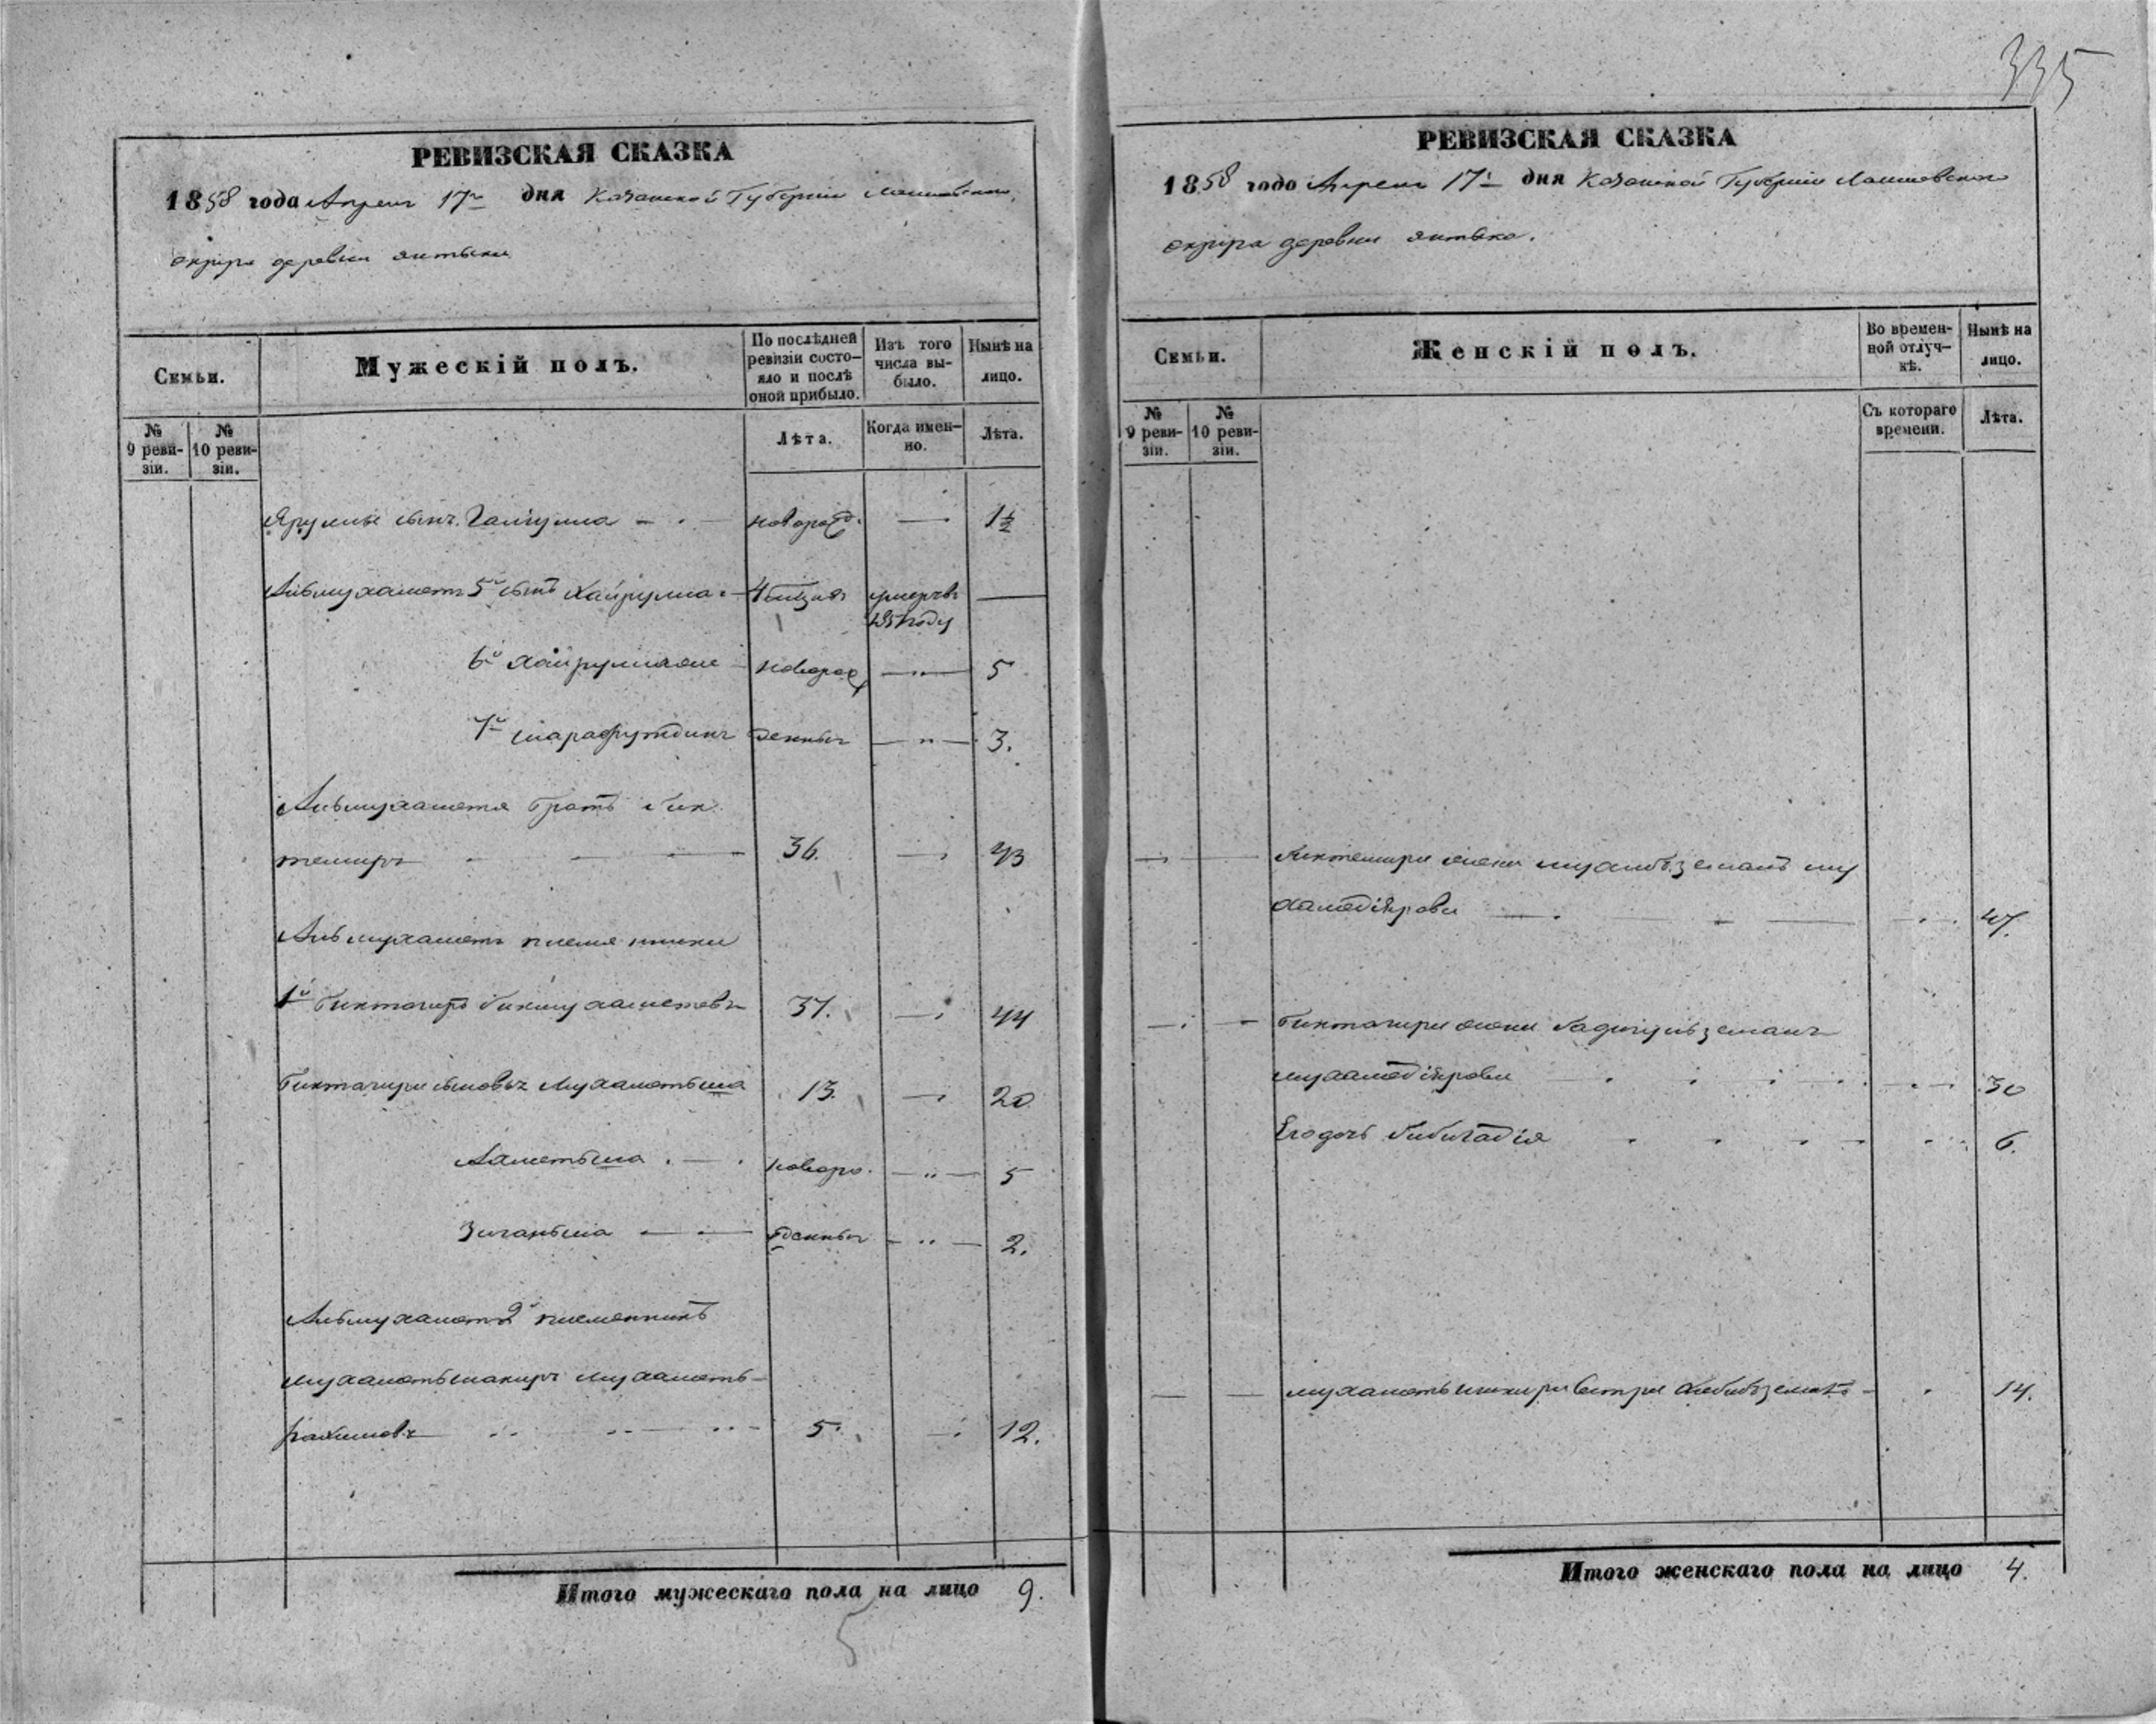 335
РЕВИЗСКАЯ СКАЗКА
1858 года Апреля 17го дня Казанской Губернии Лаишевскаго
округа деревни Янтыки
Семьи.
Мужескій полъ.
По послѣдней
ревизіи состо-
яло и послѣ
оной прибыло.
Изъ того
числа вы-
было.
Нынѣ на
лицо.
№
9 реви-
зіи.
№
10 реви-
зіи.
Лѣта.
Когда имен-
но.
Лѣта.
Ярулы сынъ Галіулла новорожд. 1½
Альмухаметъ 5й сынъ Хайрулла умерчв
году
6й новорож 5
7й Шарафутдинъ денныя 3.
Альмухаметя братъ Бик
темиръ 36. 43
Альмухаметъ племянники
1й Биктагиръ Бикмухаметевъ 37. 44
Биктагиры сыновья Мухаметьша 13. 20
Ахметьша новоро. 5
Зиганьша жденныя 2.
Альмухаметъ 2й племенникъ
Мухаметьшакиръ Мухаметь-
рахимовъ 5. 12.
Итого мужескаго пола на лицо 9.
5
РЕВИЗСКАЯ СКАЗКА
1858 года Апреля 17го дня Казанской Губернии Лаишевскаго
округа деревни Янтыка.
Семьи.
Женскій полъ.
Во времен-
ной отлуч-
кѣ.
Нынѣ на
лицо.
№
9 реви-
зіи.
№
10 реви-
зіи.
Съ котораго
времени.
Лѣта.
Биктемиры жена му
47.
Биктагиры жена Бадигульземанъ
30
Егодочь Бибигадія 6.
Мухаметьшакиры сестры 14.
Итого женскаго пола на лицо 4.